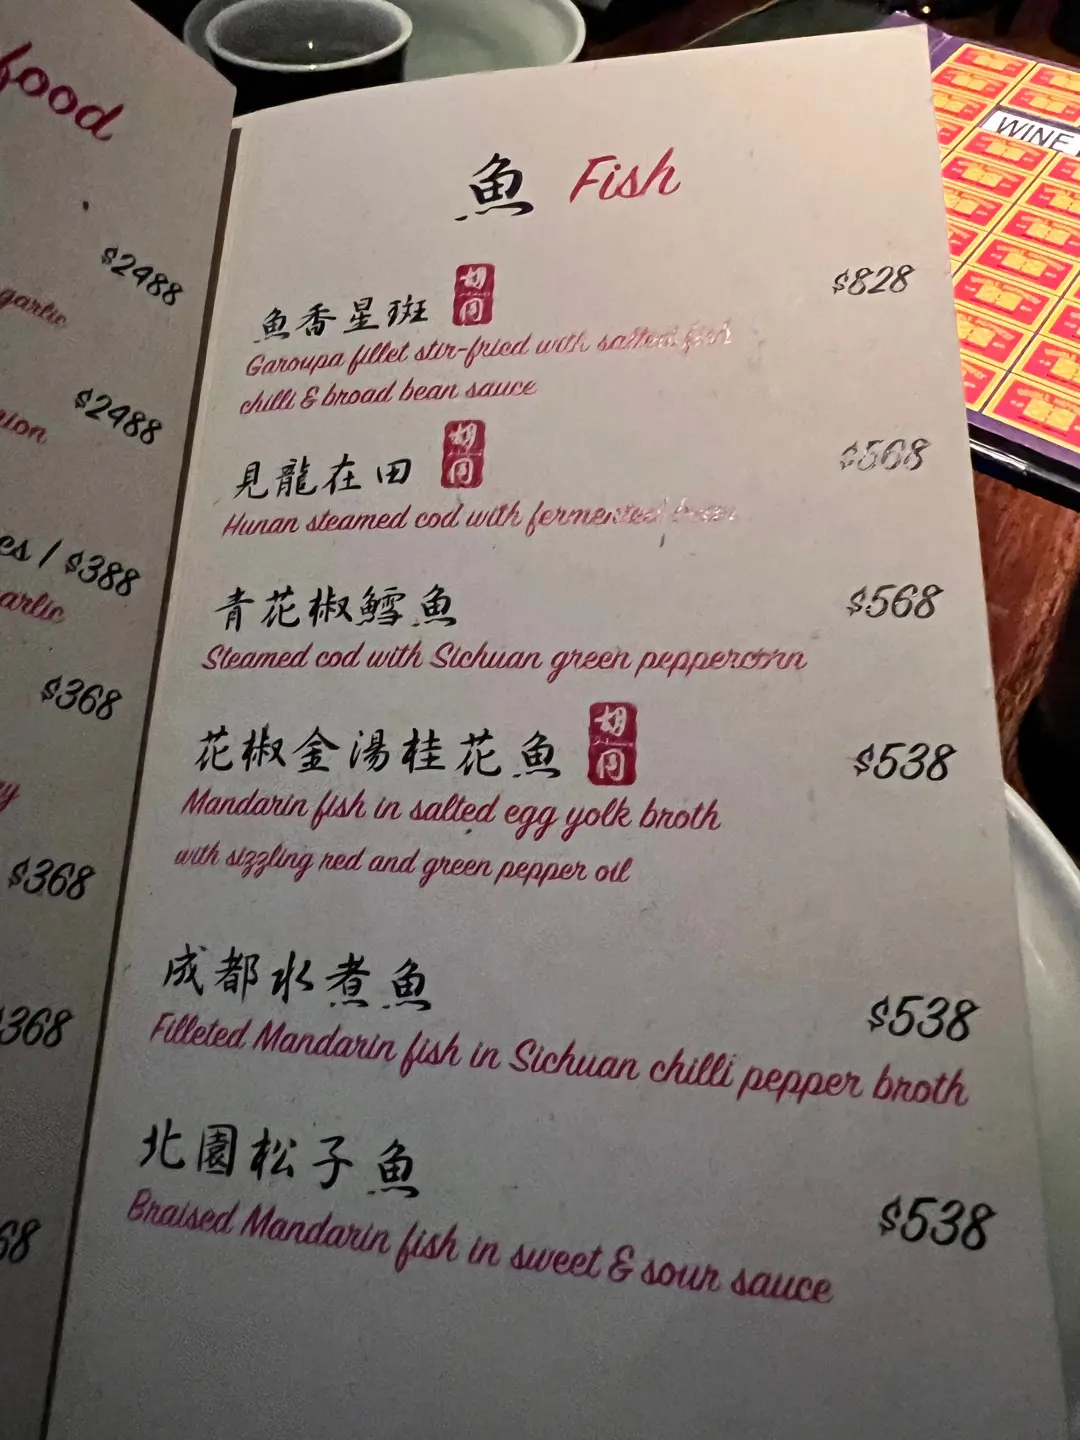 food
$2488
garlic
$2488
$388
$368
$368
368
魚 Fish
魚香星斑 胡同 $828
Garoupa fillet stir-fried with salted fish
chilli & broad bean sauce
見龍在田 胡同 $568
Hunan steamed cod with fermented bean
青花椒鱈魚 $568
Steamed cod with Sichuan green peppercorn
花椒金湯桂花魚 胡同 $538
Mandarin fish in salted egg yolk broth
with sizzling red and green pepper oil
成都水煮魚 $538
Filleted Mandarin fish in Sichuan chilli pepper broth
北園松子魚 $538
Braised Mandarin fish in sweet & sour sauce
WINE